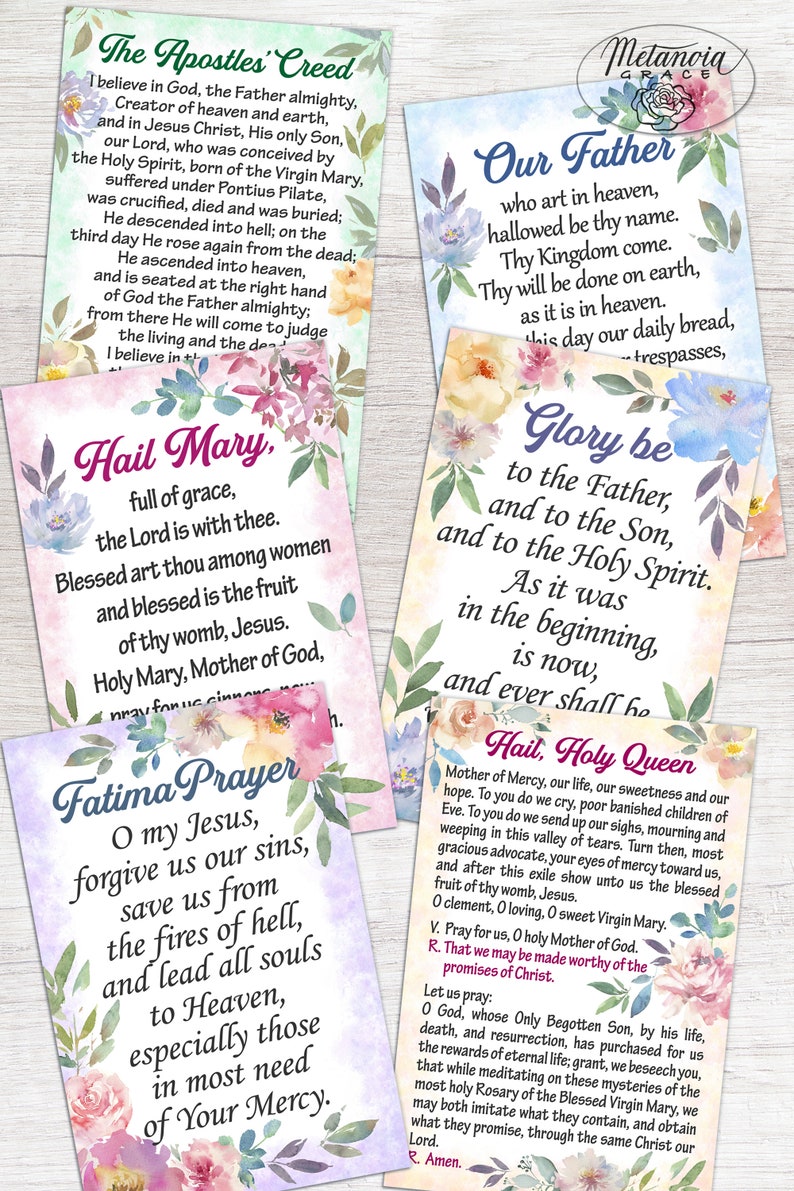 Metanoia
GRACE
The Apostles' Creed
I believe in God, the Father almighty,
Creator of heaven and earth,
and in Jesus Christ, His only Son,
our Lord, who was conceived by
the Holy Spirit, born of the Virgin Mary,
suffered under Pontius Pilate,
was crucified, died and was buried;
He descended into hell; on the
third day He rose again from the dead;
He ascended into heaven,
and is seated at the right hand
of God the Father almighty;
from there He will come to judge
the living and the dead
I believe in the
Our Father
who art in heaven,
hallowed be thy name.
Thy Kingdom come.
Thy will be done on earth,
as it is in heaven.
this day our daily bread,
trespasses,
Hail Mary,
full of grace,
the Lord is with thee.
Blessed art thou among women
and blessed is the fruit
of thy womb, Jesus.
Holy Mary, Mother of God,
pray for us sinners, now
Glory be
to the Father,
and to the Son,
and to the Holy Spirit.
As it was
in the beginning,
is now,
and ever shall be
Fatima Prayer
O my Jesus,
forgive us our sins,
save us from
the fires of hell,
and lead all souls
to Heaven,
especially those
in most need
of Your Mercy.
Hail, Holy Queen
Mother of Mercy, our life, our sweetness and our
hope. To you do we cry, poor banished children of
Eve. To you do we send up our sighs, mourning and
weeping in this valley of tears. Turn then, most
gracious advocate, your eyes of mercy toward us,
and after this exile show unto us the blessed
fruit of thy womb, Jesus.
O clement, O loving, O sweet Virgin Mary.
V. Pray for us, O holy Mother of God.
R. That we may be made worthy of the
promises of Christ.
Let us pray:
O God, whose Only Begotten Son, by his life,
death, and resurrection, has purchased for us
the rewards of eternal life; grant, we beseech you,
that while meditating on these mysteries of the
most holy Rosary of the Blessed Virgin Mary, we
may both imitate what they contain, and obtain
what they promise, through the same Christ our
Lord.
R. Amen.